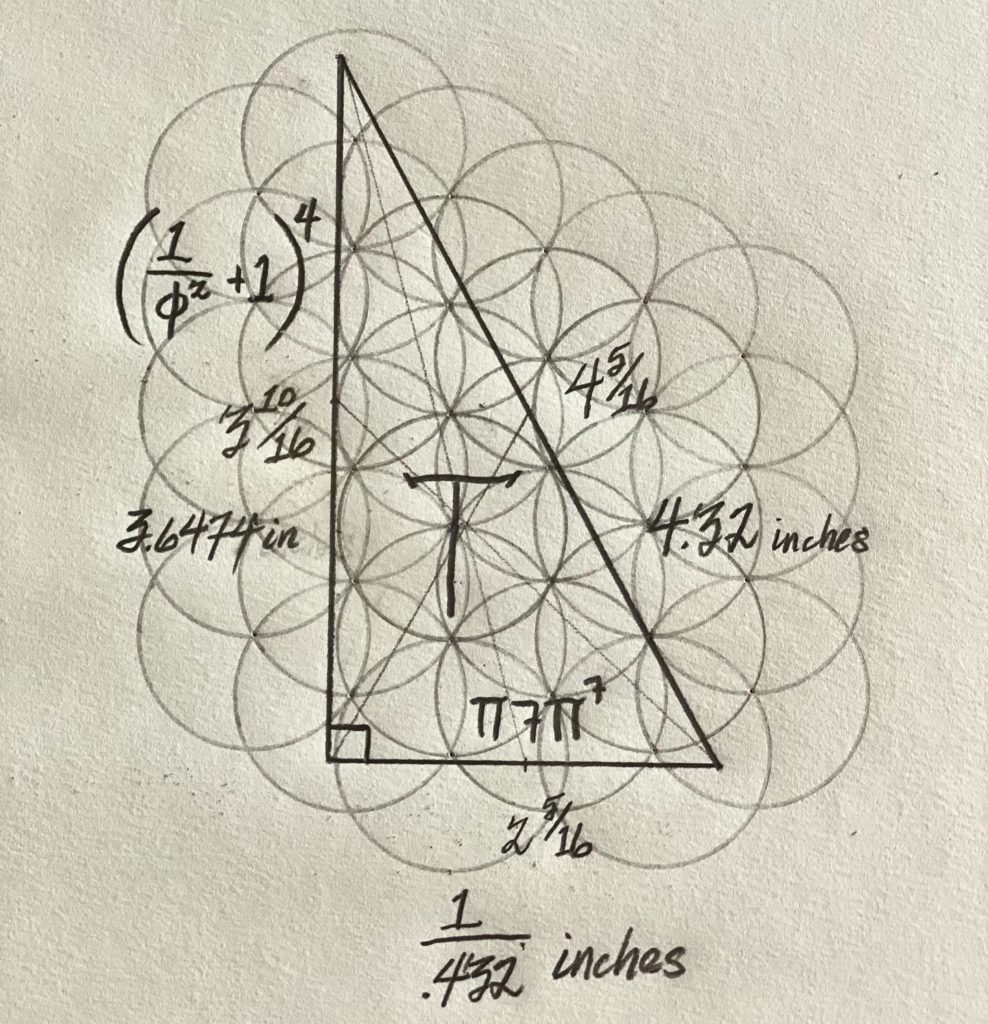 (1/φ² + 1)⁴
3 10/16
3.6474 in
4 5/16
4.32 inches
T
π7π⁷
2 5/16
1/.432 inches